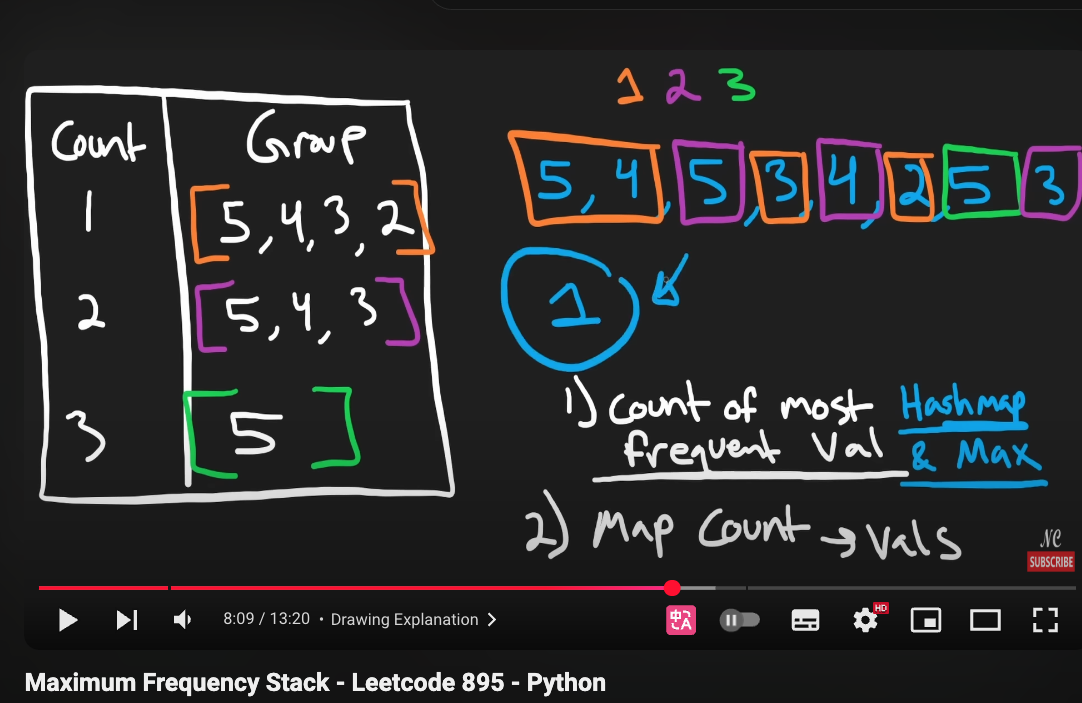 1 2 3
Count Group
1 [5, 4, 3, 2]
2 [5, 4, 3]
3 [5]
5, 4, 5, 3, 4, 2, 5 3
1
1) Count of most frequent Val
Hashmap & Max
2) Map Count → Vals
NC
SUBSCRIBE
8:09 / 13:20 • Drawing Explanation >
中 A
HD
Maximum Frequency Stack - Leetcode 895 - Python